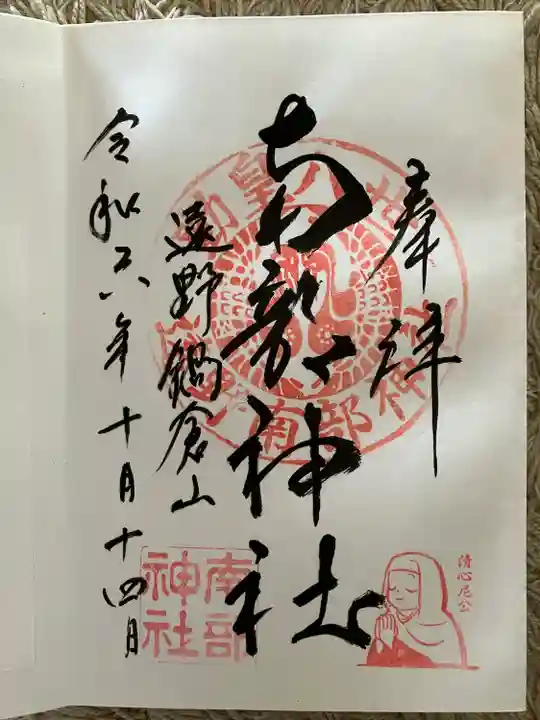 奉拝
南部神社
遠野鍋倉山
令和六年十月十四日
南部
神社
清心尼公